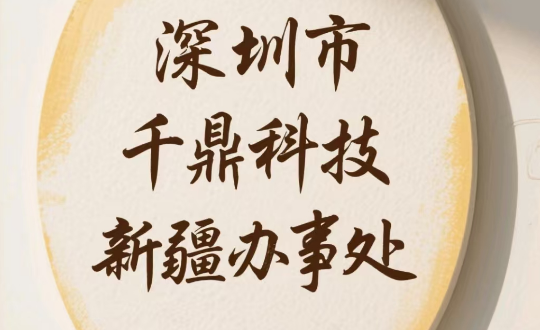 深圳市
千鼎科技
新疆办事处